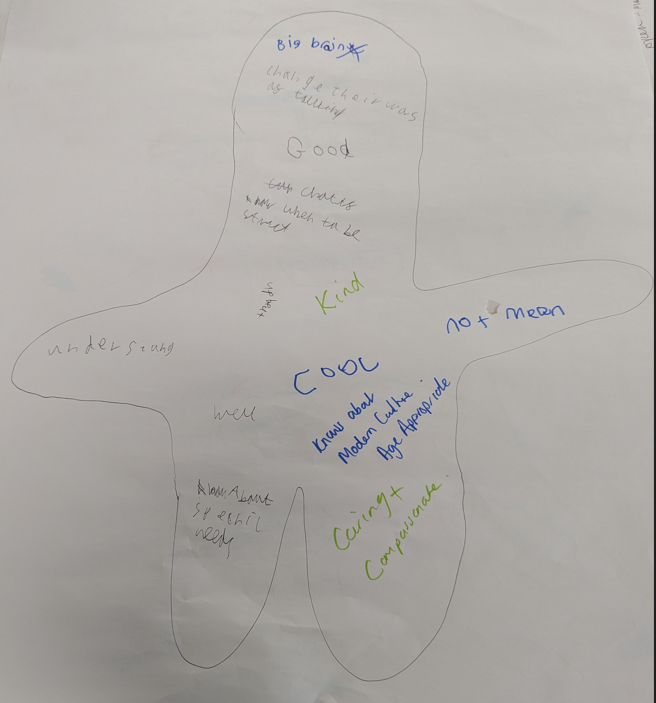 Big brain
change their was
as talking
Good
know when to be
strict
Kind
not mean
understang
COOL
well
Knows about
Modern Culture.
Age Appropriate
know About
specific
needs
Caring +
Compassionate.